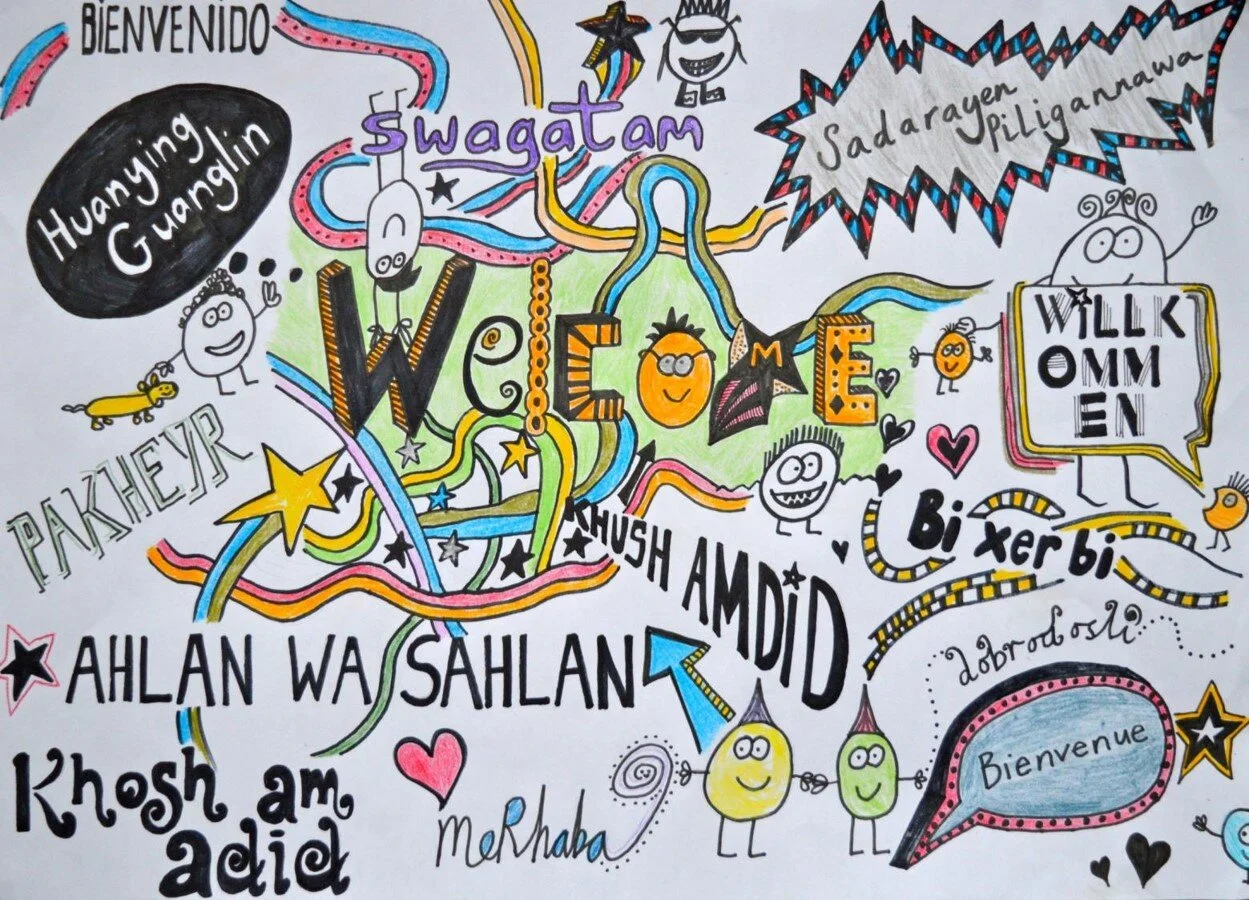 BIENVENIDO
Swagatam
Sadarayen
PiLigannawa
Huanying
Guanglin
WelcOME
WiLLK
OMM
EN
PAKHEYR
KHUSH AMDiD
Bi xer bi
AHLAN WA SAHLAN
dobrodosli
Bienvenue
Khosh am
adid
meRhaba